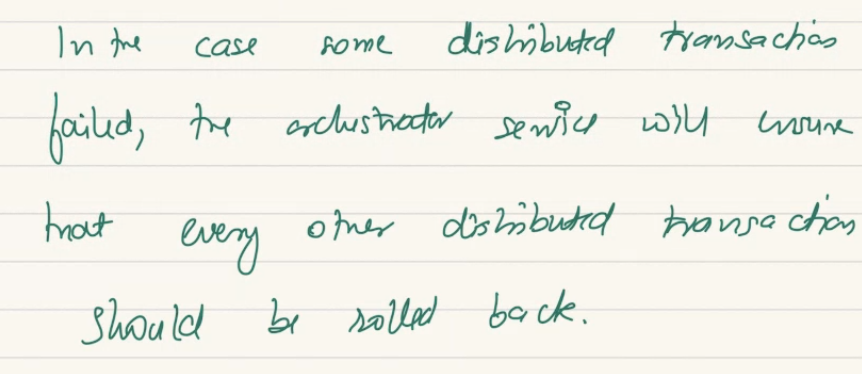 In the case some distributed transactions
failed, the orchestrator service will ensure
that every other distributed transactions
should be rolled back.